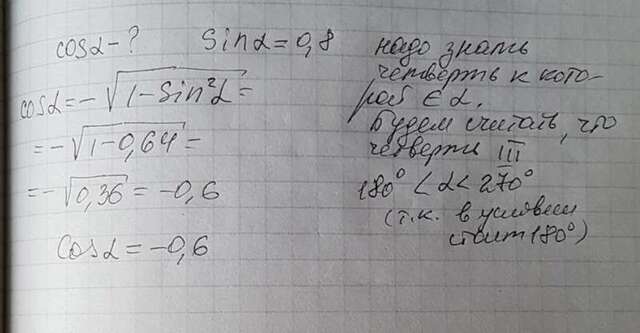 cosα - ? Sinα = 0,8
cosα = -√(1 - Sin²α) =
= -√(1 - 0,64) =
= -√(0,36) = -0,6
Cosα = -0,6
надо знать
четверть к кото-
рой ∈ α.
Будем считать, что
четверти III
180° < α < 270°
(т.к. в условии
стоит 180°)